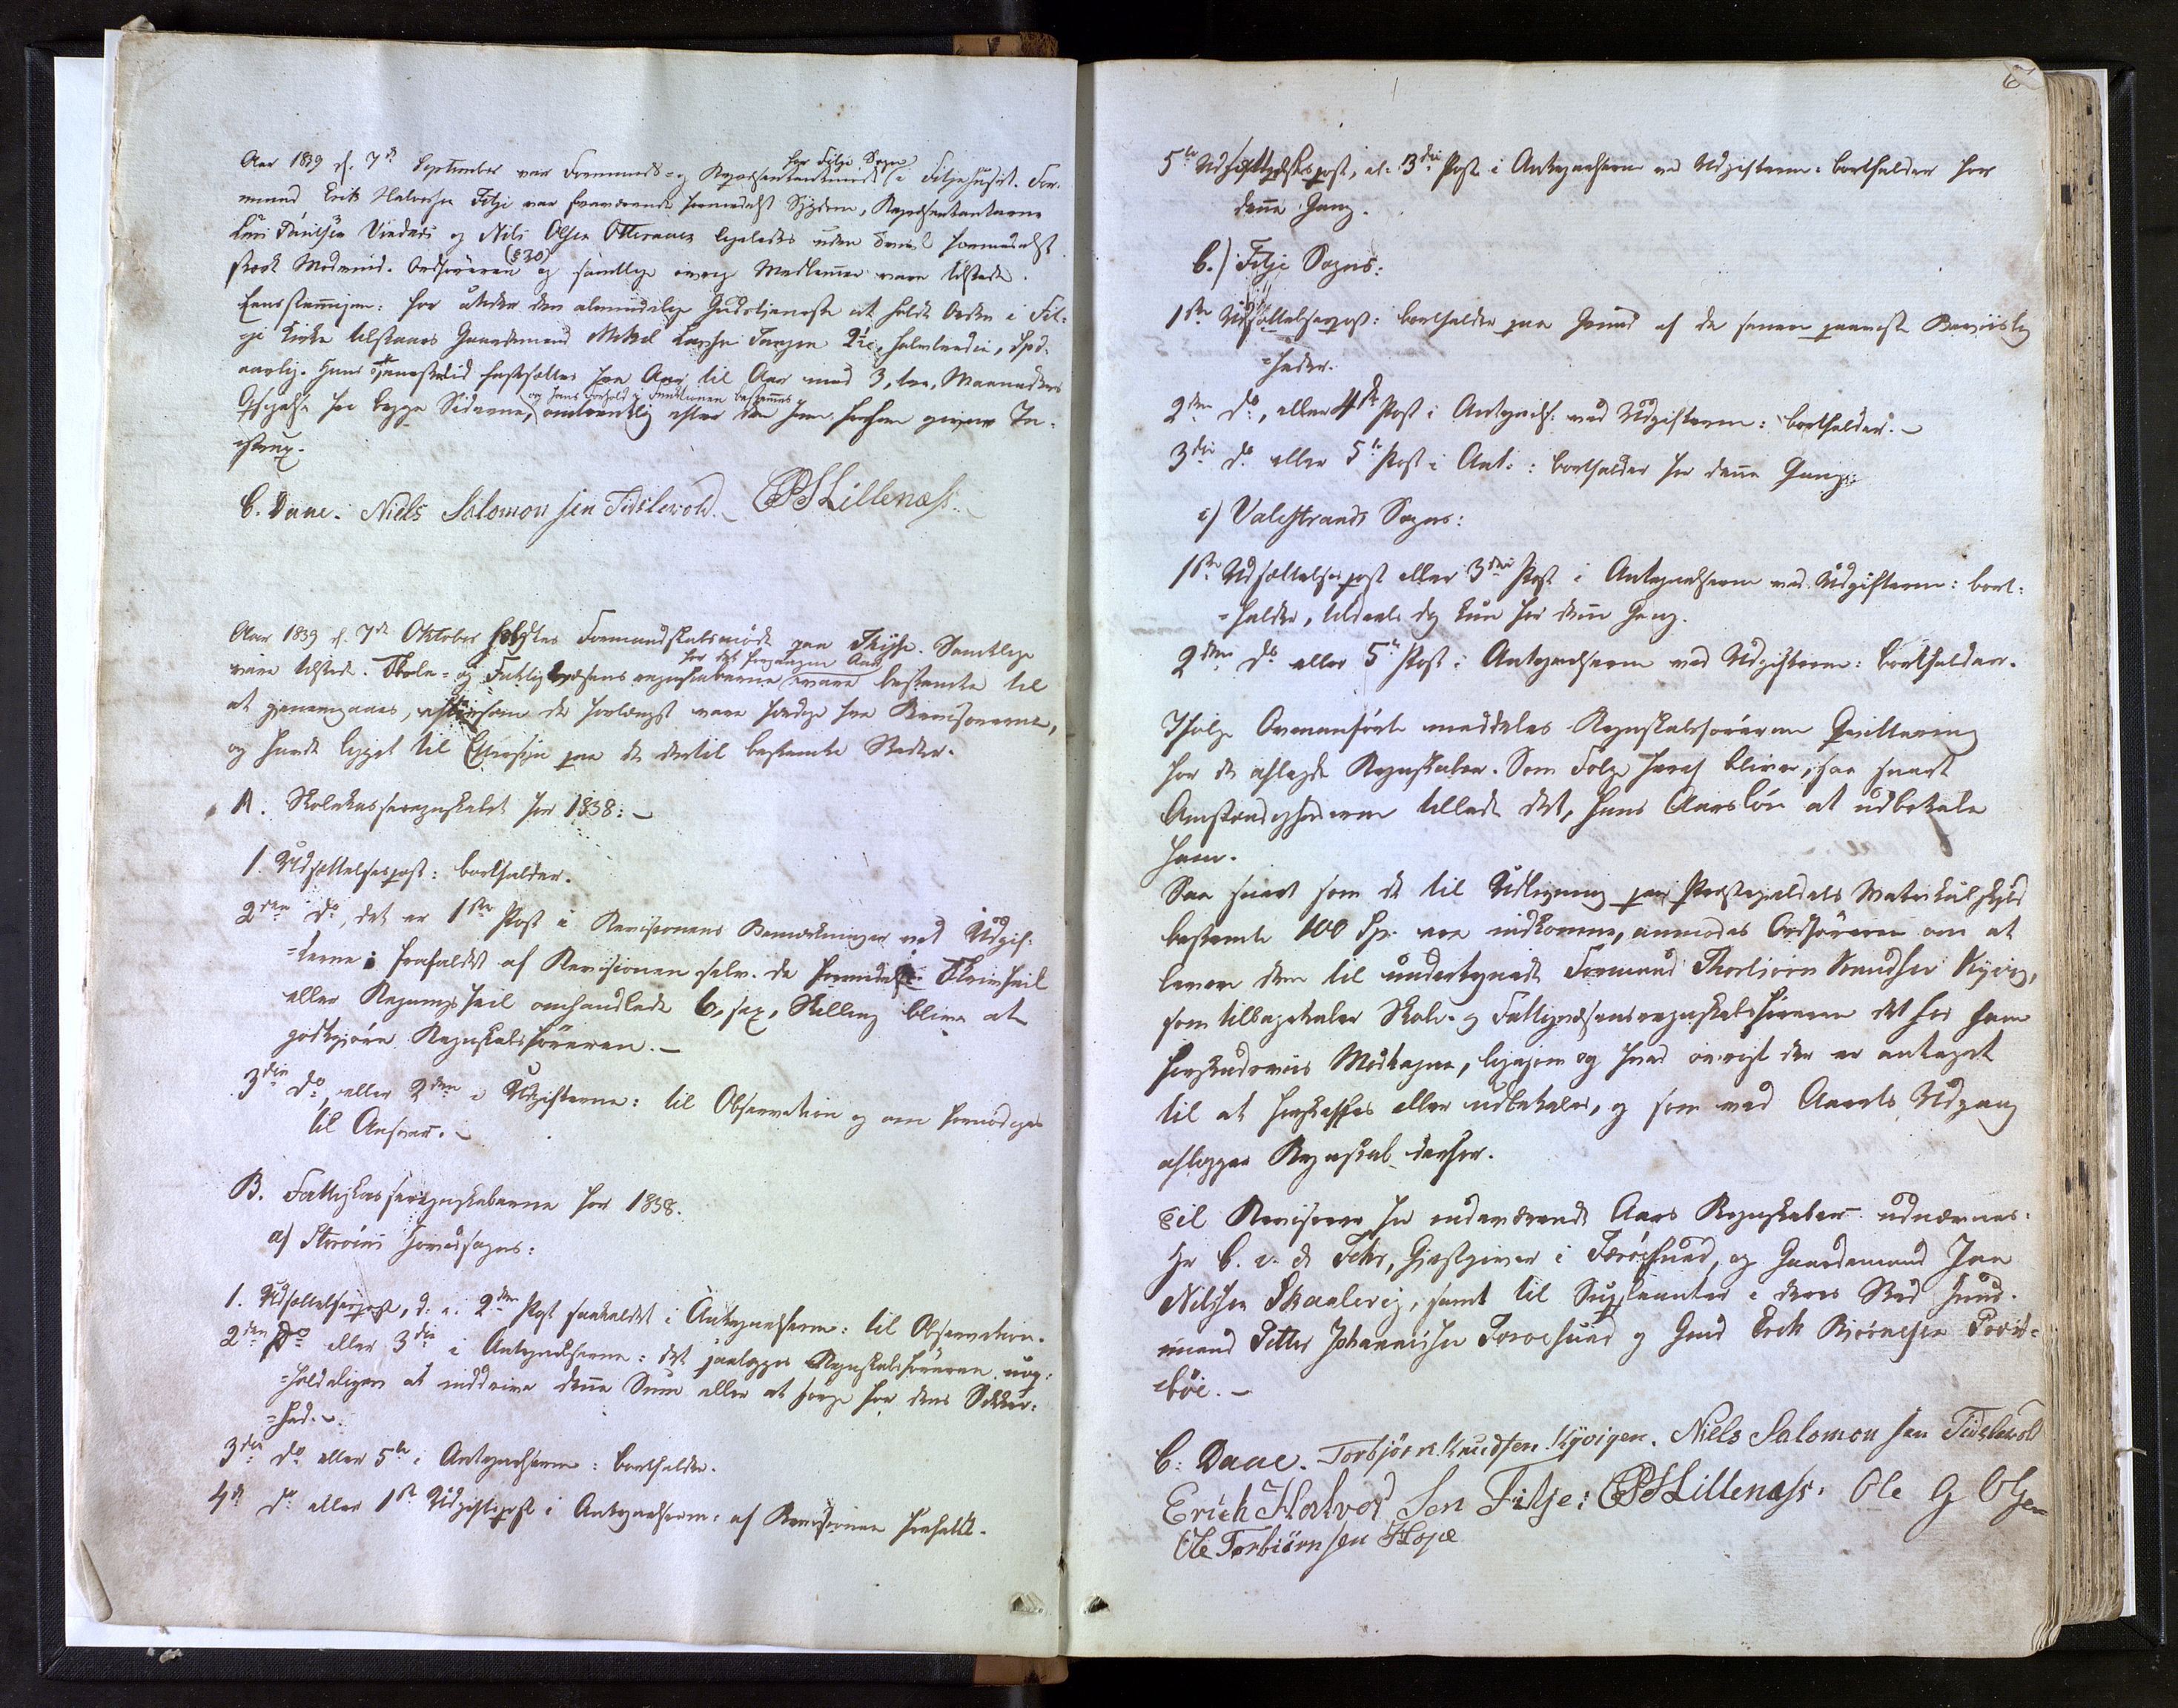 Aar 1839 d. 7de September var Formands- og Repræsentantmøde for Fitje Sogn i Fitjehuset. For-
mand Erik Halvorsen Fitje var fraværende formedelst Sygdom, Repræsentanterne
Lars Paulsen Vindnæs og Nils Olsen Otteraaen ligeledes uden Svivl formedelst
stærk Modvind. Ordføreren (§30) og samtlige øvrige Medlemmer vare tilstede.
Eenstemmigen: for under den almindelige Gudstjeneste at holde Orden i Fit-
je Kirke tilstaaes Gaardmand Mikel Larsen 2½, halvtredie, Spd.
aarlig. Hans Tjenestetid fastsættes fra Aar til Aar med 3, tre, Maaneders
Opsigelse fra begge Siderne, og hans Forhold i Funktionen bestemmes omtrentlig efter den ham given In-
strux.
C. Daae. Niels Salomonsen Tidslevold. CPS Lillenæs.
Aar 1839 d. 7de Oktober holdtes Formandskabsmøde paa Thysse. Samtlige
vare tilstede. Skole- og Fattigvæsens regnskaberne for det foregangne Aar vare bestemte til
at gjennemgaaes, eftersom de forlængst vare færdige fra Revisorerne,
og havde ligget til Eftersyn paa de dertil bestemte Steder.
A. Skolekasseregnskabet for 1838:
1. Udsættelsespost: bortfalder.
2den do, det er 1ste Post i Revisionens Bemærkninger ved Udgif-
terne; frafaldet af Revisionen selv. De formedelst Skrivfeil
eller Regningsfeil omhandlede 6, sex, Skilling bliver at
godtgjøre Regnskabsføreren.
3die do eller 2den i Udgifterne: til Observation og om fornødiges
til Ansvar.
B. Fattigkasseregnskaberne for 1838.
a) Størøens Hovedsogns:
1. Udsættelsespost, d. e. 2den Post saakaldet i Antegnelserne: til Observation.
2den do eller 3die i Antegnelserne: det paalægges Regnskabsføreren uop-
holdeligen at inddrive denne Sum eller at sørge for dens Sikker-
hed.
3die do eller 5te i Antegnelserne: bortfalder.
4de do eller 1ste Udgiftspost i Antegnelserne: af Revisionen frafaldt.
6
5te Udsættelsespost, el. 3die Post i Antegnelserne ved Udgifterne: bortfalder for
denne Gang.
b.) Fitje Sogns:
1ste Udsættelsespost: bortfalder paa Grund af de senere paaviste Beviislig-
heder.
2den do, eller 4de Post i Antegnels. ved Udgifterne: bortfalder.
3die do eller 5te Post i Ant.: bortfalder for denne Gang.
c) Valestrands Sogns:
1ste Udsættelsespost eller 3die Post i Antegnelserne ved Udgifterne: bort-
falder, tildeels dog kun for denne Gang.
2den do eller 5te Post i Antegnelserne ved Udgifterne: bortfalder.
Ifølge Ovenanførte meddeles Regnskabsføreren Qvittering
for de aflagde Regnskaber. Som Følge heraf bliver, saa snart
Omstændighederne tillade det, hans Aarsløn at udbetale
ham.
Saa snart som de til Udligning paa Præstegjeldets Matrikulskyld
bestemte 100 Sp. ere indkomne, anmodes Ordføreren om at
levere dem til undertegnede Formand Thorbjørn Knudsen Kyvig,
som tilbagebetaler Skole- og Fattigvæsensregnskabsføreren det for ham
forskudsviis Modtagne, ligesom og hvad øvrigt der er antaget
til at forskaffes eller udbetales, og som ved Aarets Udgang
aflægger Regnskab derfor.
Til Revisorer for indeværende Aars Regnskaber udnævnes.
Hr C. v. d. Fehr, Gjæstgiver i Færøesund, og Gaardmand Jan
Nilssen Skaalevig, samt til Suppleanter i deres Sted Huus-
mand Petter Johannesen Forøesund og Gmd Erik Bjørnesen
bøe.
C: Daae. Torbjörn Knudsen Kÿvigen. Niels Salomonsen Tidslevold
Erich Halvor Sen Fitje: CPS Lillenæs. Ole G Olsen
Ole Torbiörnsen Hope